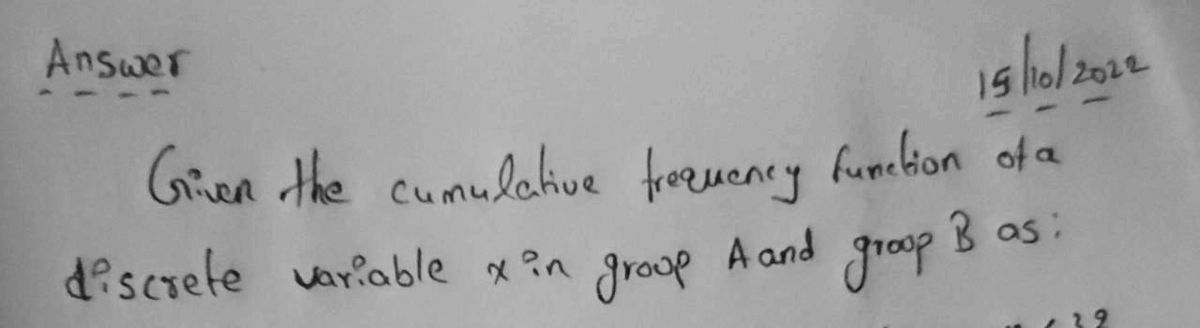 Answer
15/10/2022
Given the cumulative frequency function of a
discrete variable x in group A and group B as: